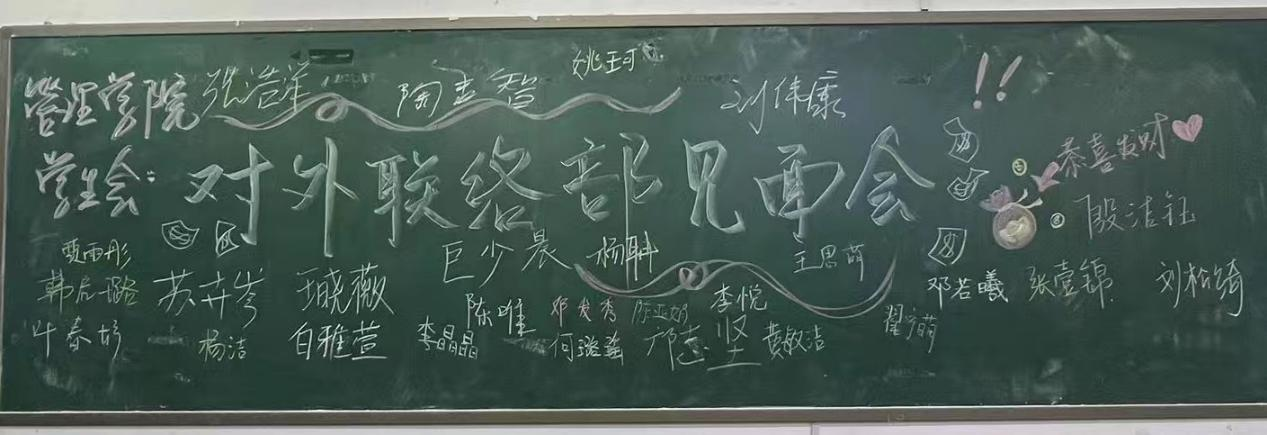 姚珂
管理学院 张浩军 陶志智 刘伟康 !!
学生会: 对外联络部见面会 恭喜发财
殷洁钰
贾雨彤 巨少晨 杨聃 王思萌
韩启璐 苏卉岑 王晓薇 陈唯 邓发秀 陈亚娟 李悦 邓若曦 张雪锦 刘松绮
叶春杉 杨洁 白雅萱 李晶晶 何瑞莲 邝志坚 黄敏洁 翟宁萌